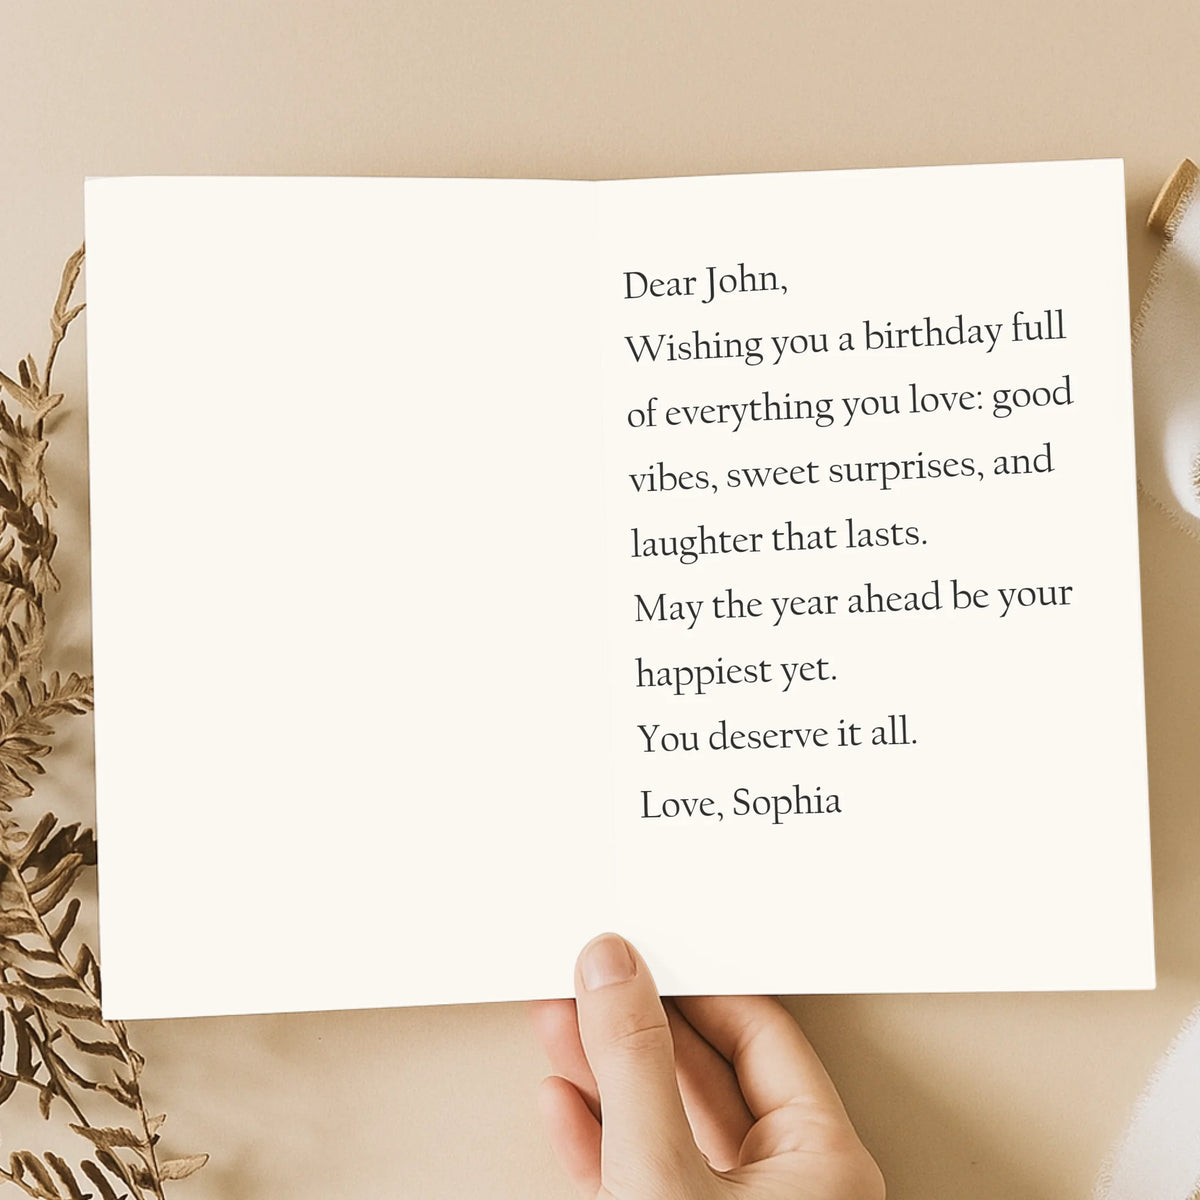 Dear John,
Wishing you a birthday full
of everything you love: good
vibes, sweet surprises, and
laughter that lasts.
May the year ahead be your
happiest yet.
You deserve it all.
Love, Sophia